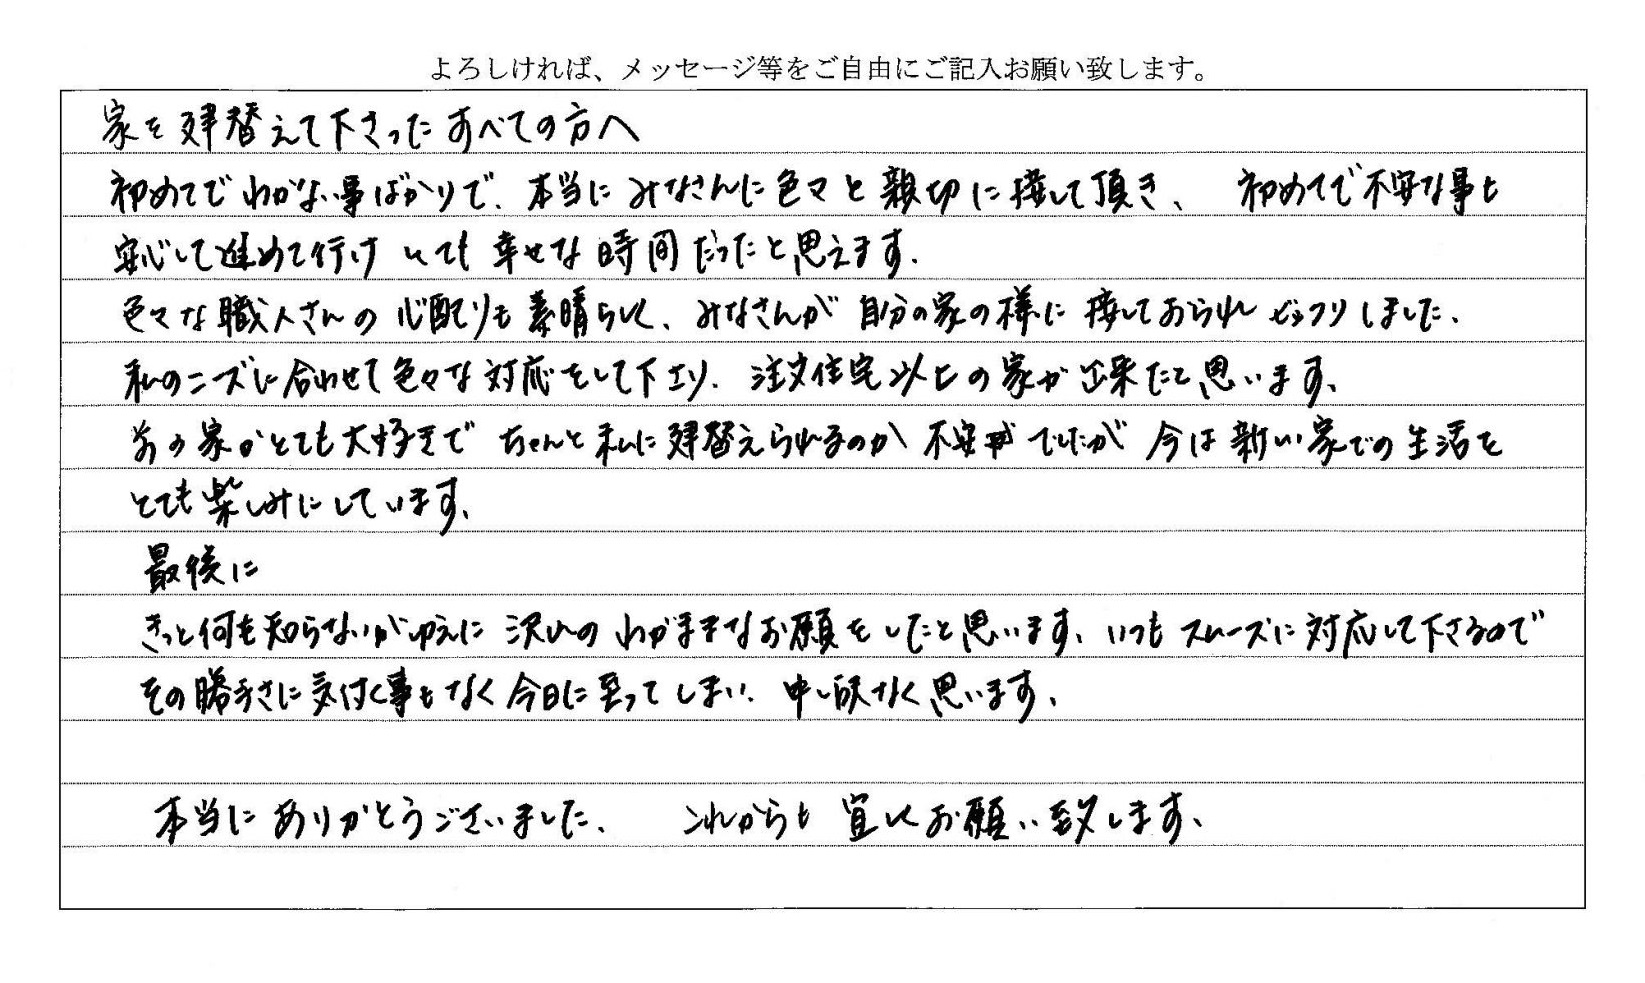 よろしければ、メッセージ等をご自由にご記入お願い致します。
家を建替えて下さったすべての方へ
初めてでわからない事ばかりで、本当にみなさんに色々と親切に接して頂き、初めてで不安な事も
安心して進めて行け とても幸せな時間だったと思えます。
色々な職人さんの心配りも素晴らしく、みなさんが自分の家の様に接しておられビックリしました。
私のニーズに合わせて色々な対応をして下さり、注文住宅以上の家が出来たと思います。
前の家がとても大好きで ちゃんと私に建替えられるのか不安でしたが 今は新しい家での生活を
とても楽しみにしています。
最後に
きっと何も知らないがゆえに沢山のわがままなお願をしたと思います、いつもスムーズに対応して下さるので
その勝手さに気付く事もなく今日に至ってしまい、申し訳なく思います、
本当にありがとうございました、これからも宜しくお願い致します、